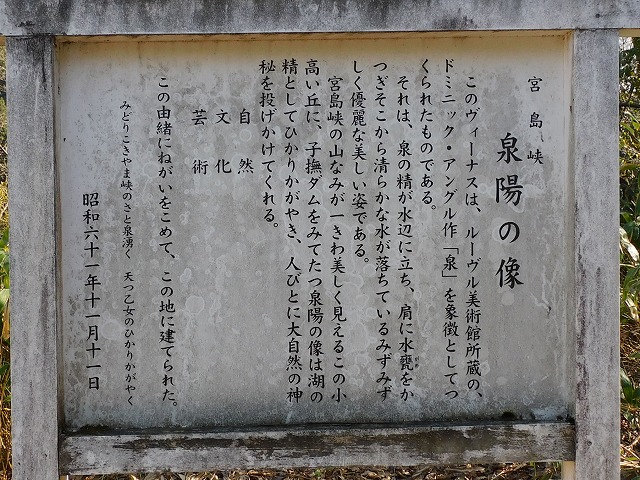 宮島峡
泉陽の像
このヴィーナスは、ルーヴル美術館所蔵の、
ドミニック・アングル作「泉」を象徴としてつ
くられたものである。
それは、泉の精が水辺に立ち、肩に水甕をか
つぎそこから清らかな水が落ちているみずみず
しく優麗な美しい姿である。
宮島峡の山なみが一きわ美しく見えるこの小
高い丘に、子撫ダムをみてたつ泉陽の像は湖の
精としてひかりかがやき、人びとに大自然の神
秘を投げかけてくれる。
自然
文化
芸術
この由緒にねがいをこめて、この地に建てられた。
みどりこきやま峡のさと泉湧く 天つ乙女のひかりかがやく
昭和六十一年十一月十一日